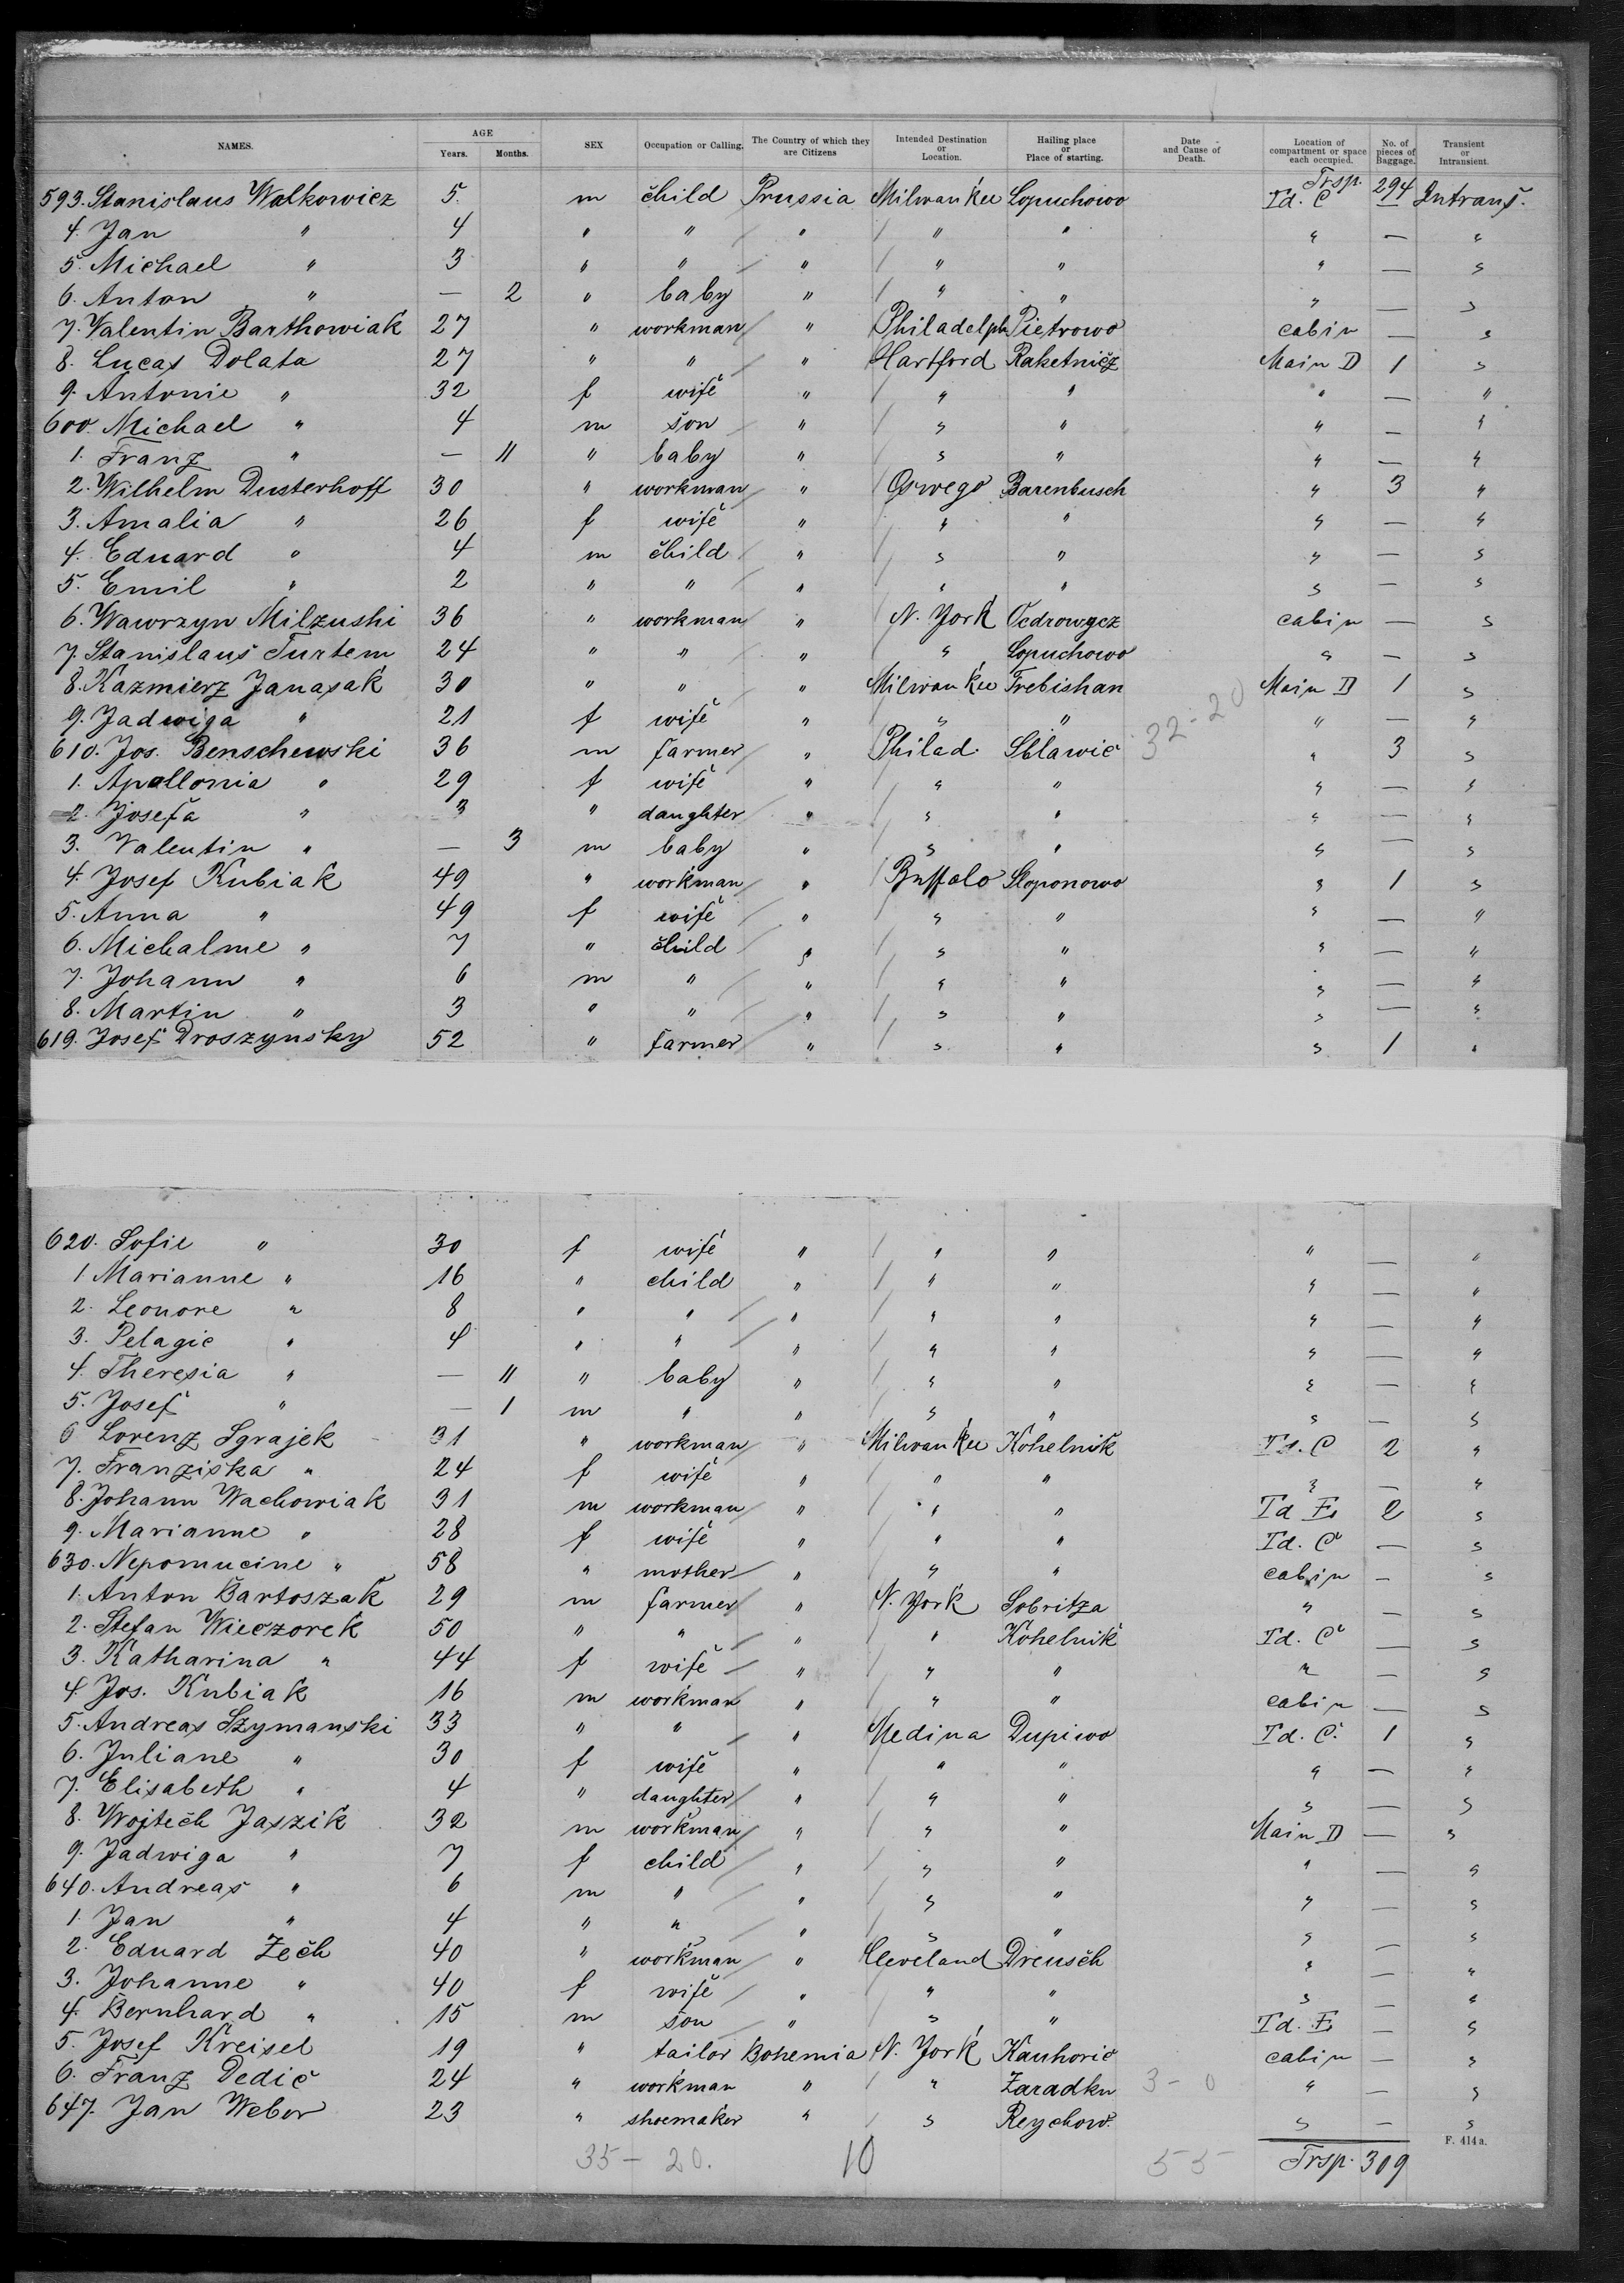 NAMES. AGE Years. Months. SEX Occupation or Calling. The Country of which they are Citizens Intended Destination or Location. Hailing place or Place of starting. Date and Cause of Death. Location of compartment or space each occupied. No. of pieces of Baggage. Transient or Intransient.
Trsp. 294
593. Stanislaus Walkowicz 5. m child Prussia Milwaukee Lopuchowo Td. C — Intrans.
4. Jan " 4 " " " " " " — "
5. Michael " 3 " " " " " " — "
6. Anton " — 2 " baby " " " " — "
7. Valentin Barthowiak 27 " workman " Philadelph Pietrowo cabin — "
8. Lucas Dolata 27 " " " Hartford Raketnicz Main D 1 "
9. Antonie " 32 f wife " " " " — "
600. Michael " 4 m son " " " " — "
1. Franz " — 11 " baby " " " " — "
2. Wilhelm Dusterhoff 30 " workman " Oswego Barenbusch " 3 "
3. Amalia " 26 f wife " " " " — "
4. Eduard " 4 m child " " " " — "
5. Emil " 2 " " " " " " — "
6. Wawrzyn Milzushi 36 " workman " N. York Oedrowgez cabin — "
7. Stanislaus Turtem 24 " " " " Lopuchowo " — "
8. Kazmierz Janasak 30 " " " Milwaukee Trebishan Main D 1 "
9. Jadwiga " 21 f wife " " " " — "
32-20
610. Jos. Benschewski 36 m farmer " Philad. Sblawic " 3 "
1. Apollonia " 29 f wife " " " " — "
2. Josefa " 3 " daughter " " " " — "
3. Valentin " — 3 m baby " " " " — "
4. Josef Kubiak 49 " workman " Buffalo Sloponowo " 1 "
5. Anna " 49 f wife " " " " — "
6. Michalme " 7 " child " " " " — "
7. Johann " 6 m " " " " " — "
8. Martin " 3 " " " " " " — "
619. Josef Droszynsky 52 " farmer " " " " 1 "
620. Sofie " 30 f wife " " " " — "
1. Marianne " 16 " child " " " " — "
2. Leonore " 8 " " " " " " — "
3. Pelagie " 4 " " " " " " — "
4. Theresia " — 11 " baby " " " " — "
5. Josef " — 1 m " " " " " — "
6 Lorenz Sgrajek 31 " workman " Milwaukee Kohelnik Td. C 2 "
7. Franziska " 24 f wife " " " " — "
8. Johann Wachowiak 31 m workman " " " Td E. 2 "
9. Marianne " 28 f wife " " " Td. C — "
630. Nepomucine " 58 " mother " " " cabin — "
1. Anton Bartoszak 29 m farmer " N. York Sobritza " — "
2. Stefan Wieczorek 50 " " " " Kohelnik Td. C — "
3. Katharina " 44 f wife " " " " — "
4. Jos. Kubiak 16 m workman " " " cabin — "
5. Andreas Szymanski 33 " " " Medina Dupiwo Td. C. 1 "
6. Juliane " 30 f wife " " " " — "
7. Elisabeth " 4 " daughter " " " " — "
8. Wojtech Jaszik 32 m workman " " " Main D — "
9. Jadwiga " 7 f child " " " " — "
640. Andreas " 6 m " " " " " — "
1. Jan " 4 " " " " " " — "
2. Eduard Zech 40 " workman " Cleveland Dreusch " — "
3. Johanne " 40 f wife " " " " — "
4. Bernhard " 15 m son " " " Td. E. — "
5. Josef Kreisel 19 " tailor Bohemia N. York Kauhoric cabin — "
6. Franz Dedic 24 " workman " " Zaradku 3-0 " — "
647. Jan Weber 23 " shoemaker " " Reychow. " — "
F. 414a.
35 - 20. 10 55 Trsp. 309